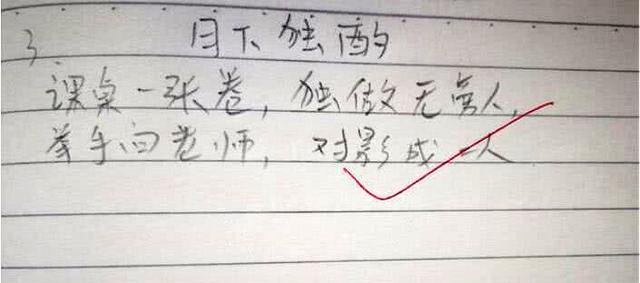 3、月下独酌
课桌一张卷，独做无旁人，
举手向老师，对影成一人